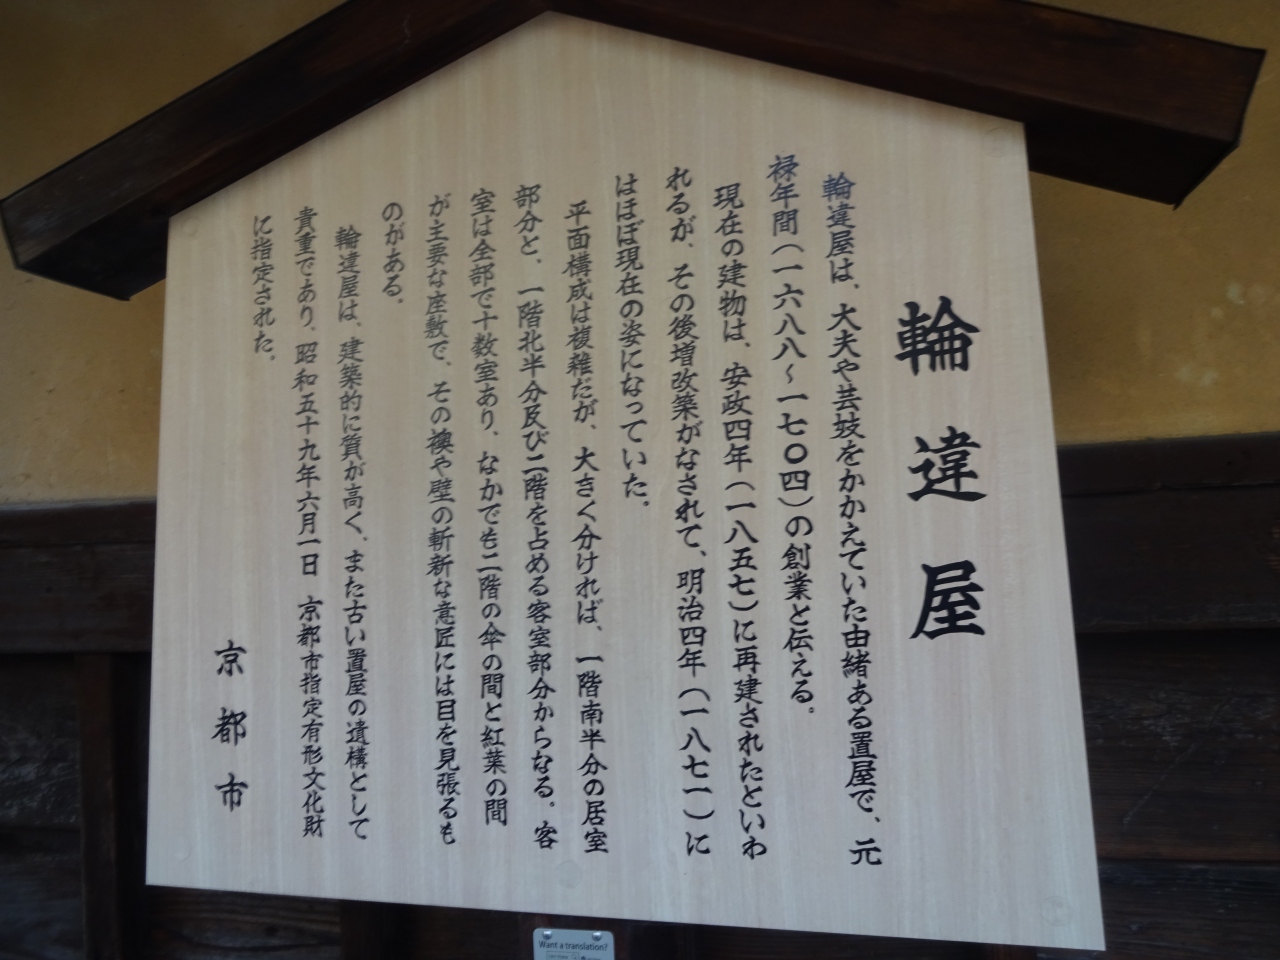 輪違屋
輪違屋は、大夫や芸妓をかかえていた由緒ある置屋で、元
禄年間(一六八八～一七〇四)の創業と伝える。
現在の建物は、安政四年(一八五七)に再建されたといわ
れるが、その後増改築がなされて、明治四年(一八七一)に
はほぼ現在の姿になっていた。
平面構成は複雑だが、大きく分ければ、一階南半分の居室
部分と、一階北半分及び二階を占める客室部分からなる。客
室は全部で十数室あり、なかでも二階の傘の間と紅葉の間
が主要な座敷で、その襖や壁の斬新な意匠には目を見張るも
のがある。
輪違屋は、建築的に質が高く、また古い置屋の遺構として
貴重であり、昭和五十九年六月一日 京都市指定有形文化財
に指定された。
京都市
Want a translation?